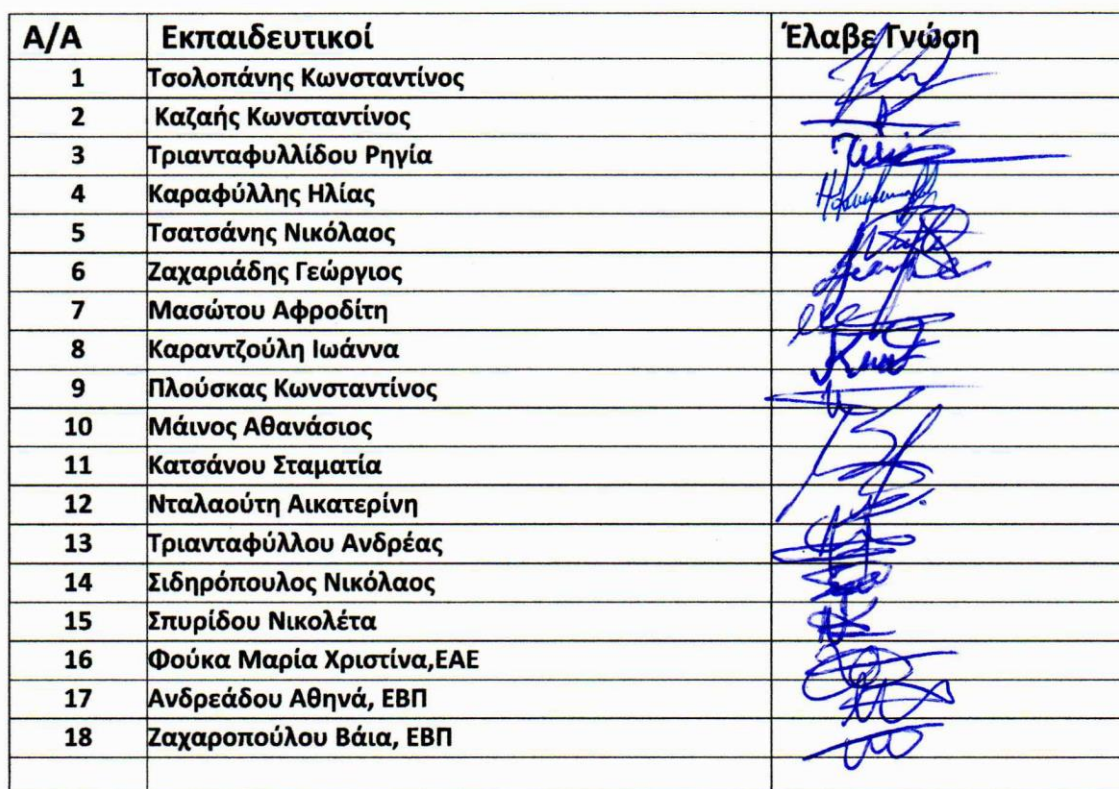 Α/Α Εκπαιδευτικοί Έλαβε Γνώση
1 Τσολοπάνης Κωνσταντίνος
2 Καζαής Κωνσταντίνος
3 Τριανταφυλλίδου Ρηγία
4 Καραφύλλης Ηλίας
5 Τσατσάνης Νικόλαος
6 Ζαχαριάδης Γεώργιος
7 Μασώτου Αφροδίτη
8 Καραντζούλη Ιωάννα
9 Πλούσκας Κωνσταντίνος
10 Μάινος Αθανάσιος
11 Κατσάνου Σταματία
12 Νταλαούτη Αικατερίνη
13 Τριανταφύλλου Ανδρέας
14 Σιδηρόπουλος Νικόλαος
15 Σπυρίδου Νικολέτα
16 Φούκα Μαρία Χριστίνα,ΕΑΕ
17 Ανδρεάδου Αθηνά, ΕΒΠ
18 Ζαχαροπούλου Βάια, ΕΒΠ